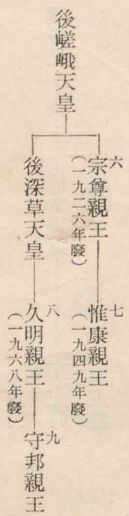 後嵯峨天皇
六
宗尊親王
(一九二六年廢)
七
惟康親王
(一九四九年廢)
後深草天皇
八
久明親王
(一九六八年廢)
九
守邦親王